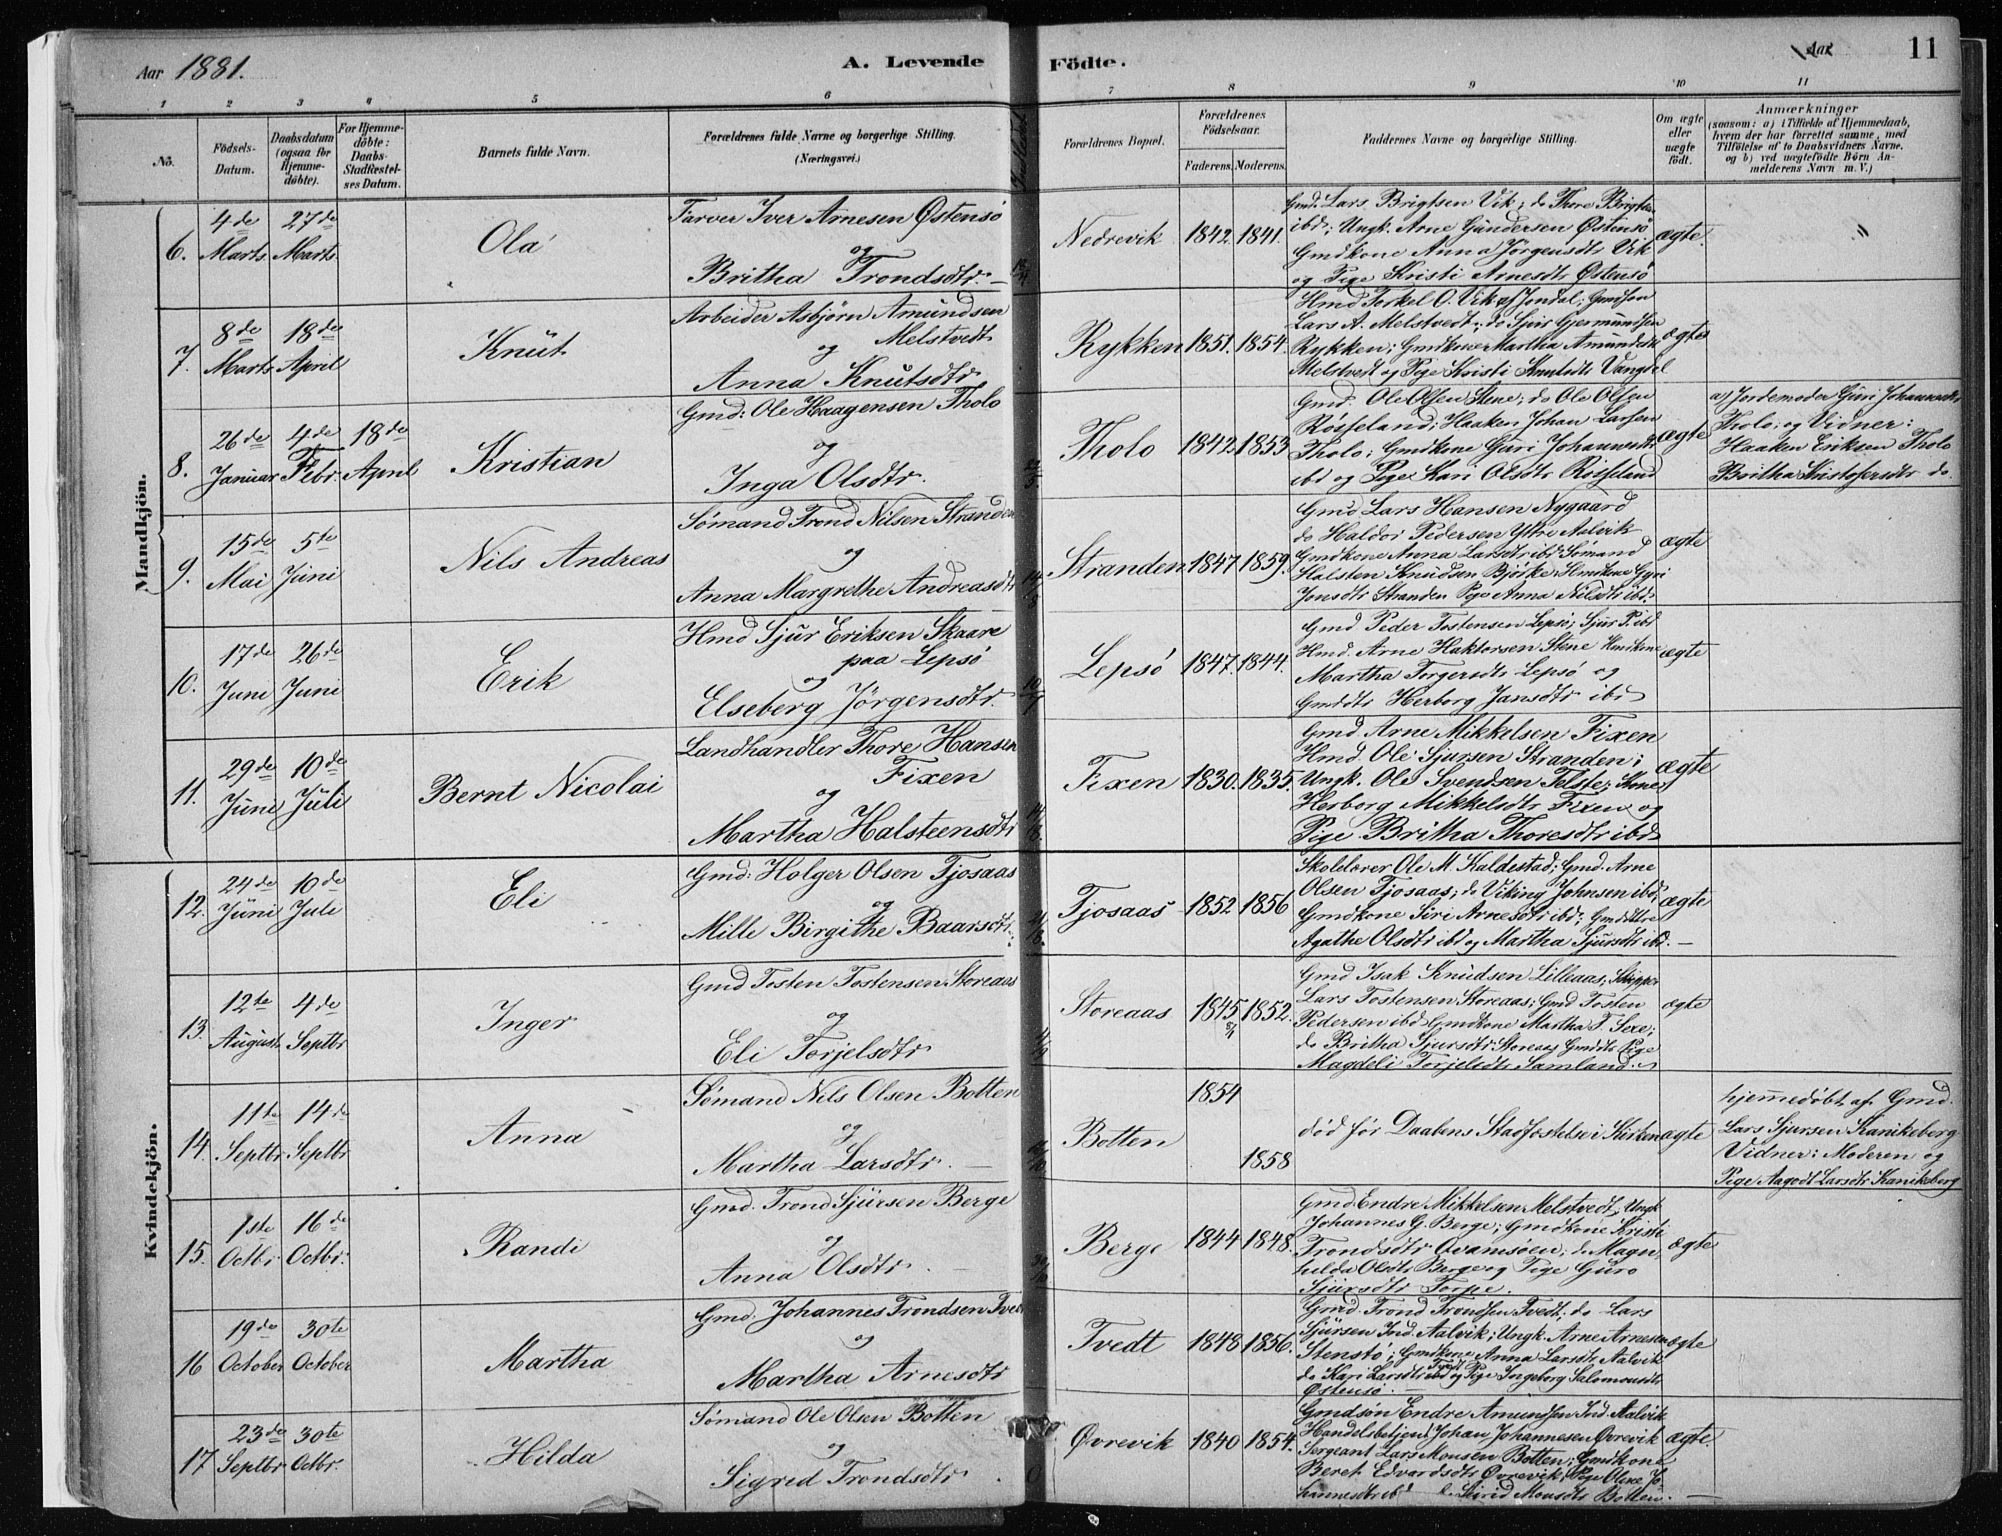 Aar 1881.
A. Levende
Födte.
Aar
11
1 2 3 4 5 6 7 8 9 10 11
No.
Födsels-
Datum.
Daabsdatum
(ogsaa for
Hjemme-
döbte).
For Hjemme-
döbte:
Daabs-
Stadfæstel-
ses Datum.
Barnets fulde Navn.
Forældrenes fulde Navne og borgerlige Stilling.
(Næringsvei.)
Forældrenes Bopæl.
Forældrenes
Födselsaar.
Faderens. Moderens.
Faddernes Navne og borgerlige Stilling.
Om ægte
eller
uægte
födt.
Anmærkninger
(saasom: a) i Tilfælde af Hjemmedaab,
hvem der har forrettet samme, med
Tilföielse af to Daabsvidners Navne.
og b) ved uægtefödte Börn An-
melderens Navn m. V.)
Mandkjön.
6. 4de Marts 27de Marts. Ola
Farver Iver Arnesen Østensø
og
Britha Trondsdtr.
Nedrevik 1842. 1841.
Gmd. Lars Brigtsen Vik; do Tore Brigtsen
ibd; Ungk. Arne Gundersen Østensø
Gmdkone Anna Jørgensdtr Vik
og Pige Kristi Arnesdtr Østensø
ægte.
"
7. 8de Marts 18de April Knut
Arbeider Asbjørn Amundsen
Melstvedt
og
Anna Knutsdtr
Rykken 1851. 1854.
Hmd Torkel O. Vik af Jondal; Gmdsøn
Lars A. Melstvedt; do Sjur Gjermundsen
Rykken; Gmdkone Martha Amundsdtr
Melstvedt og Pige Kristi Knutsdtr Vangdal
ægte
8. 26de Januar 4de Febr. 18de April Kristian
Gmd: Ole Haagensen Tholo
og
Inga Olsdtr.
Tholo 1842. 1853
Gmd. Ole Olsen Stene; do Ole Olsen
Røsseland; Haaken Johan Larsen
Tholo; Gmdkone Guri Johannesdtr
ibd og Pige Kari Olsdtr Røisseland
ægte
a) Jordemoder Guri Johannesdtr
Tholo; og Vidner:
Haaken Eriksen Tholo
Britha Kristofersdtr do
9. 15de Mai 5te Juni Nils Andreas
Sømand Trond Nilsen Stranden
og
Anna Margrethe Andreasdtr
Stranden 1847 1859.
Gmd Lars Hansen Nygaard
do Haldor Pedersen Ytre Aalvik
Gmdkone Anna Larsdtr ibd Sømand
Halsten Knudsen Bjørke; Hmdkone Gyri
Jonsdtr Stranden Pige Anna Nilsdtr ibd.
ægte
10. 17de Juni 26de Juni Erik
Hmd Sjur Eriksen Skaare
paa Lepsø
og
Elseberg Jørgensdtr.
Lepsø 1847. 1844.
Gmd Peder Tostensen Lepsø; Sjur P. ibd
Hmd. Arne Haktorsen Stene Hmdkone
Martha Torgersdtr Lepsø og
Gmddtr Herborg Jansdtr ibd
ægte
11. 29de Juni 10de Juli Bernt Nicolai
Landhandler Thore Hansen
Fixen
og
Martha Halsteensdtr
Fixen 1830. 1835.
Gmd. Arne Mikkelsen Fixen
Hmd. Ole Sjursen Stranden;
Ungk. Ole Svendsen Telste; Kone
Herborg Mikkelsdtr Fixen og
Pige Britha Thoresdtr ibd
ægte
Kvindekjön.
12. 24de Juni 10de Juli Eli
Gmd: Holger Olsen Tjosaas
og
Mille Birgithe Baarsdtr.
Tjosaas 1852 1856
Skolelærer Ole M. Kaldestad; Gmd. Arne
Olsen Tjosaas; do Viking Johnsen ibd;
Gmdkone Siri Arnesdtr ibd; Gmddttre
Agathe Olsdtr ibd og Martha Sjursdtr ibd.
ægte
13. 12te August 4de Septbr Inger
Gmd Tosten Tostensen Storeaas
og
Eli Torjelsdtr
Storeaas 1845 1852.
Gmd Isak Knudsen Lilleaas; Skipper
Lars Tostensen Storeaas; Gmd Tosten
Pedersen ibd Gmdkone Martha T. Sexe;
do Britha Sjursdtr Storeaas Gmddtr Pige
Magdeli Torjelsdtr Samland.
ægte
14. 11te Septbr 14de Septbr Anna
Sømand Nils Olsen Botten
og
Martha Larsdtr.
Botten 1854 1858
død før Daabens Stadfæstelse i Kirken
ægte
hjemmedøbt af Gmd.
Lars Sjursen Kanikeberg
Vidner: Moderen og
Pige Aagodt Larsdtr Kanikeberg
15. 1ste Octbr. 16de Octbr. Randi
Gmd. Trond Sjursen Berge
og
Anna Olsdtr.
Berge 1844 1848.
Gmd. Endre Mikkelsen Melstvedt; Ungk
Johannes G. Berge; Gmdkone Kristi
Trondsdtr Ovamsøen; do Magn-
hilda Olsdtr Berge og Pige Guro
Sjursdtr Torpe.
ægte
16 19de October 30te October Martha
Gmd. Johannes Trondsen Tvedt
og
Martha Arnesdtr
Tvedt 1848 1856.
Gmd. Trond Trondsen Tvedt; do Lars
Sjursen Ind. Aalvik; Ungk. Arne Arnesen
Stenstø; Gmdkone Anna Larsdtr Aalvik
do Kari Larsdtr Tvedt ibd og Pige Ingeborg Salomonsdtr
Østensø.
ægte
17 23de Septbr 30te Octbr. Hilda
Sømand Ole Olsen Botten
og
Sigrid Trondsdtr
Øvrevik 1840 1854.
Gmdsøn Endre Amundsen Ind. Aalvik
Handelsbetjent Johan Johannesen Øvrevik
Sergeant Lars Monsen Botten; Gmdkone
Beret Edvardsdtr Øvrevik; Pige Oline Jo-
hannesdtr ibd do Sirid Monsdtr Botten.
ægte.